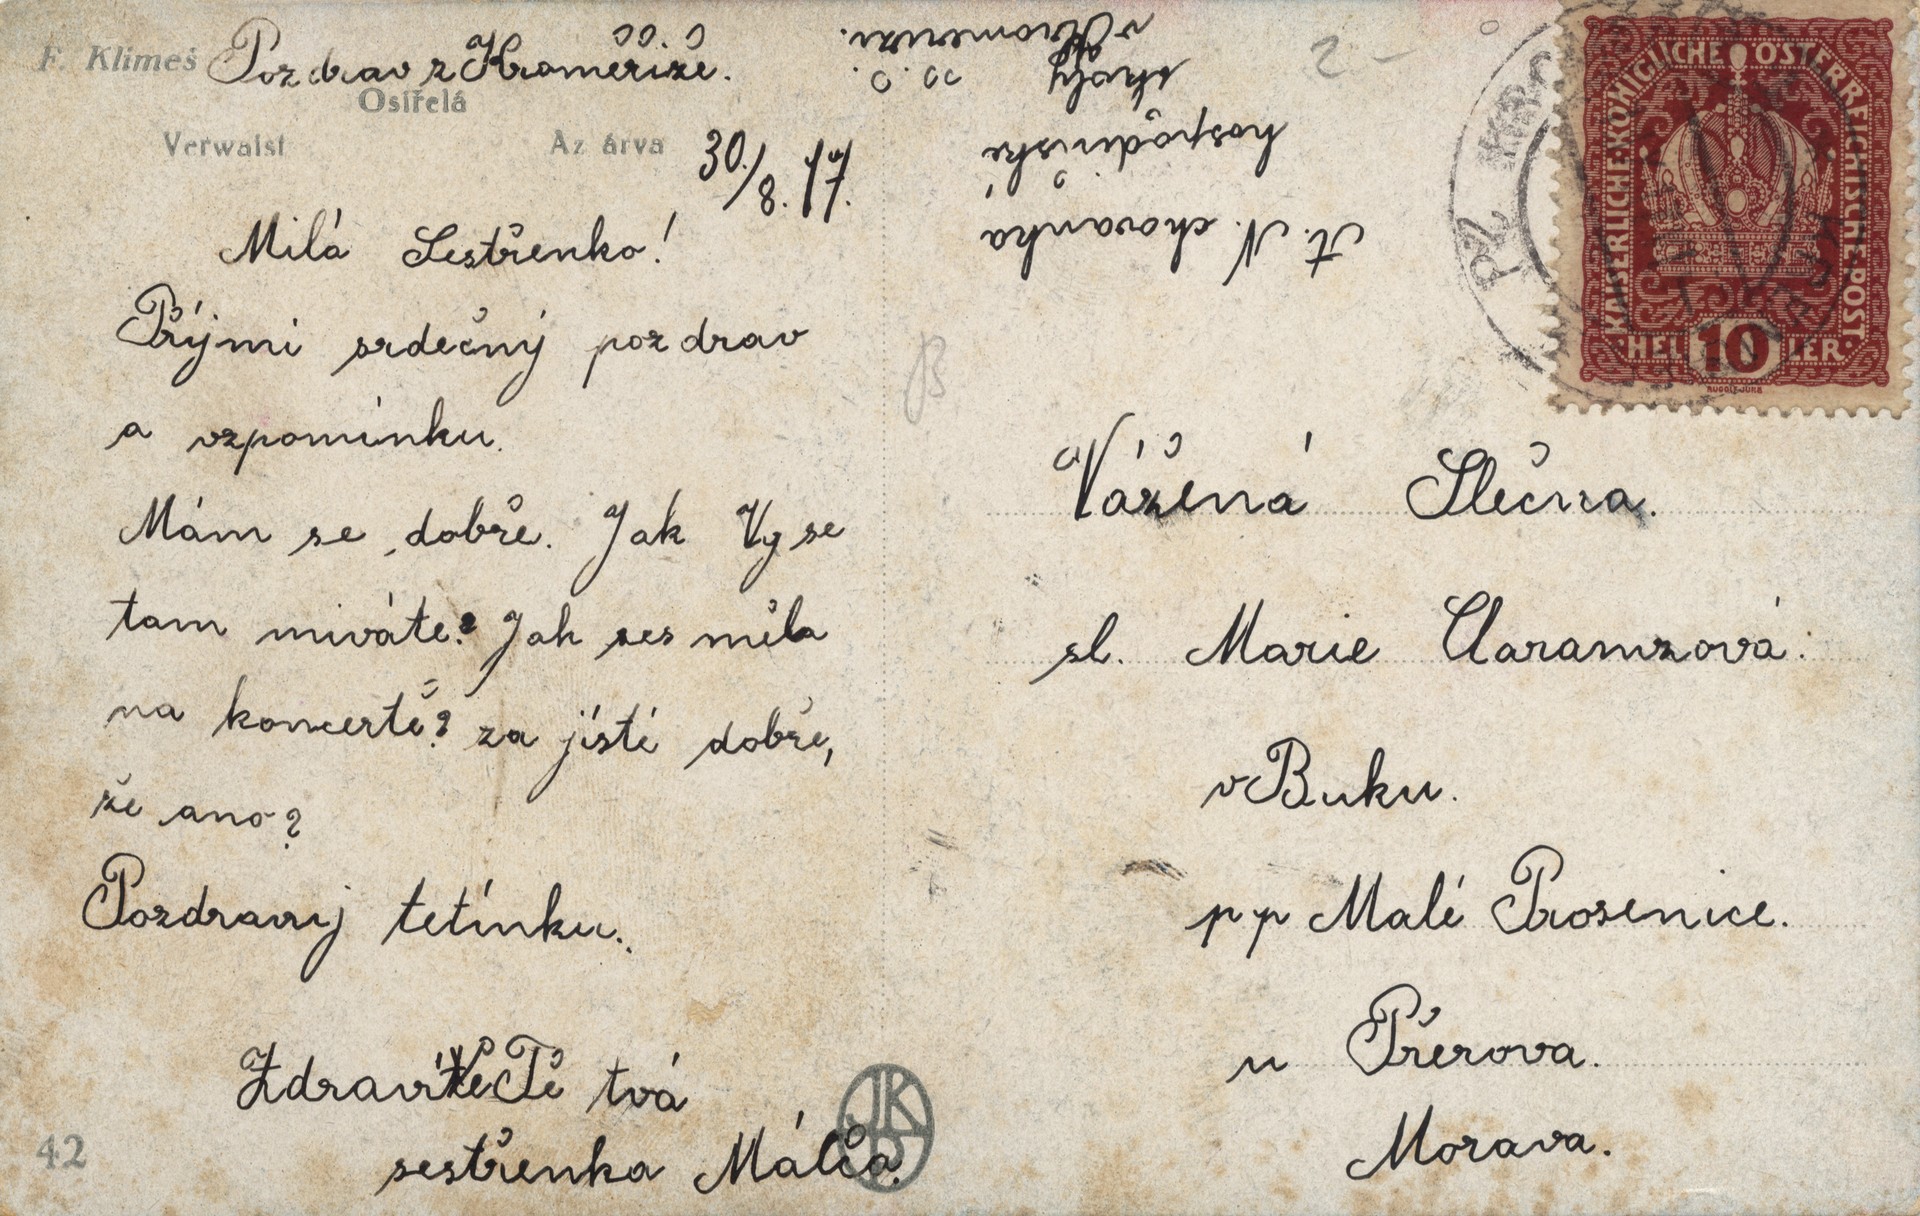 F. Klimeš
Pozdrav z Kroměříže.
Osiřelá
Verwaist
Az árva
30./8. 17.
Milá Sestřenko!
Příjmi srdečný pozdrav
a vzpomínku.
Mám se dobře. Jak Vy se
tam míváte? Jak ses měla
na koncertě? za jisté dobře,
že ano?
Pozdravuj tetínku.
Zdraví Tě tvá
sestřenka Málča.
42
JKP
A. N. chovanka
hospodyňské
školy
v Kroměříži.
2 -
B
KAISERLICHE KÖNIGLICHE ÖSTERREICHISCHE POST
HELLER 10
Vážená Slečna.
sl. Marie Claramzová.
v Buku.
pp Malé Prosenice.
u Přerova.
Morava.